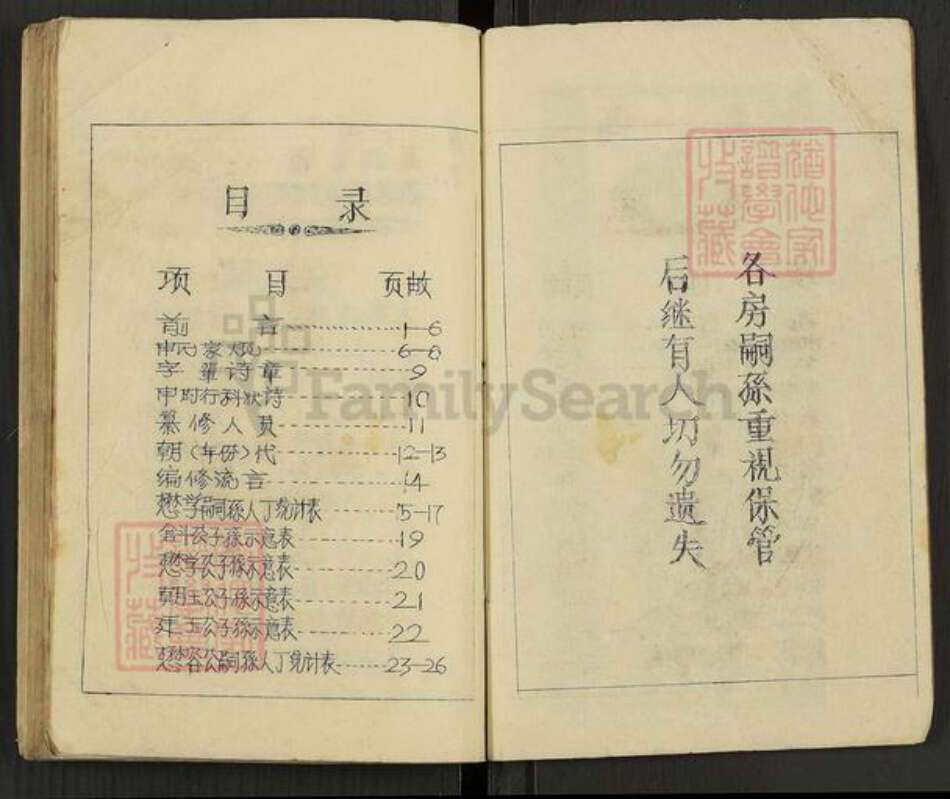 目 录
项 目 页 故
前 言 1—6
申氏家规 6—8
字 辈 诗 章 9
申时行科状诗 10
纂 修 人 员 11
朝(年份)代 12—13
编修流言 14
懋学嗣孫人丁统计表 15—17
斜公子孫示意表 19
懋学公子孫示意表 20
朝玉公子孫示意表 21
玉公子孫示意表 22
懋容公嗣孫人丁统计表 23—26
各房嗣孫重視保管
后继有人切勿遗失
FamilySearch